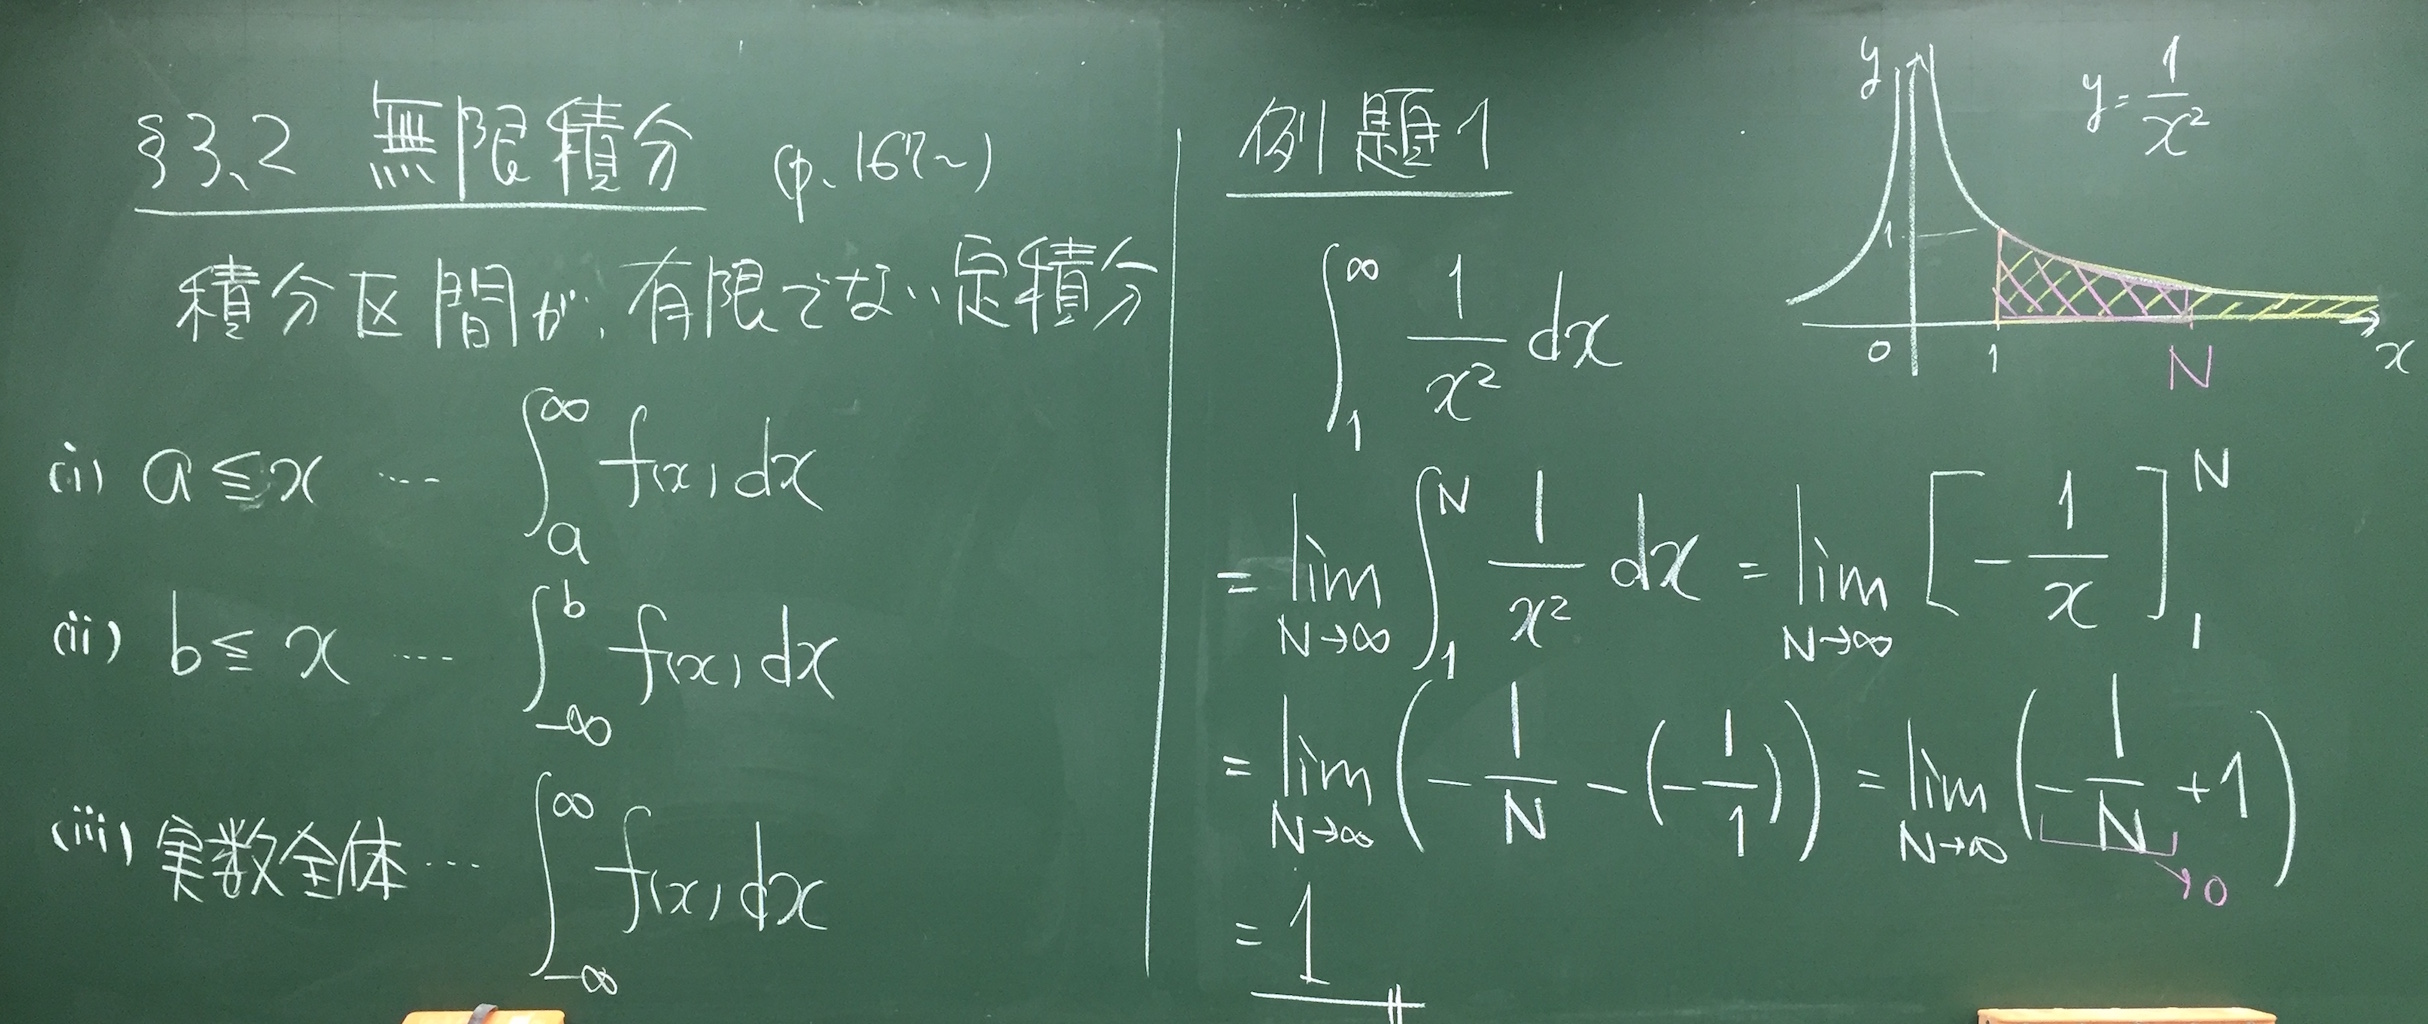 §3.2 無限積分 (p. 167~)
積分区間が、有限でない定積分
(i) a ≦ x … ∫_a^∞ f(x) dx
(ii) b ≦ x … ∫_{-∞}^b f(x) dx
(iii) 実数全体 … ∫_{-∞}^∞ f(x) dx
例題1
∫_1^∞ 1/x² dx
= lim_{N→∞} ∫_1^N 1/x² dx = lim_{N→∞} [-1/x]_1^N
= lim_{N→∞} (-1/N - (-1/1)) = lim_{N→∞} (-1/N + 1)
→ 0
= 1
y
y = 1/x²
1
0
1
N
x